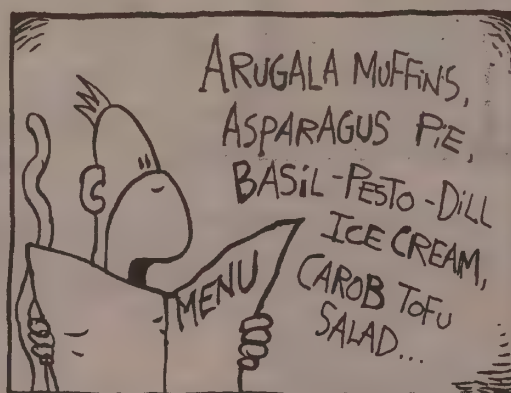 ARUGALA MUFFINS,
ASPARAGUS PIE,
BASIL-PESTO-DILL
ICE CREAM,
CAROB TOFU
SALAD...
MENU